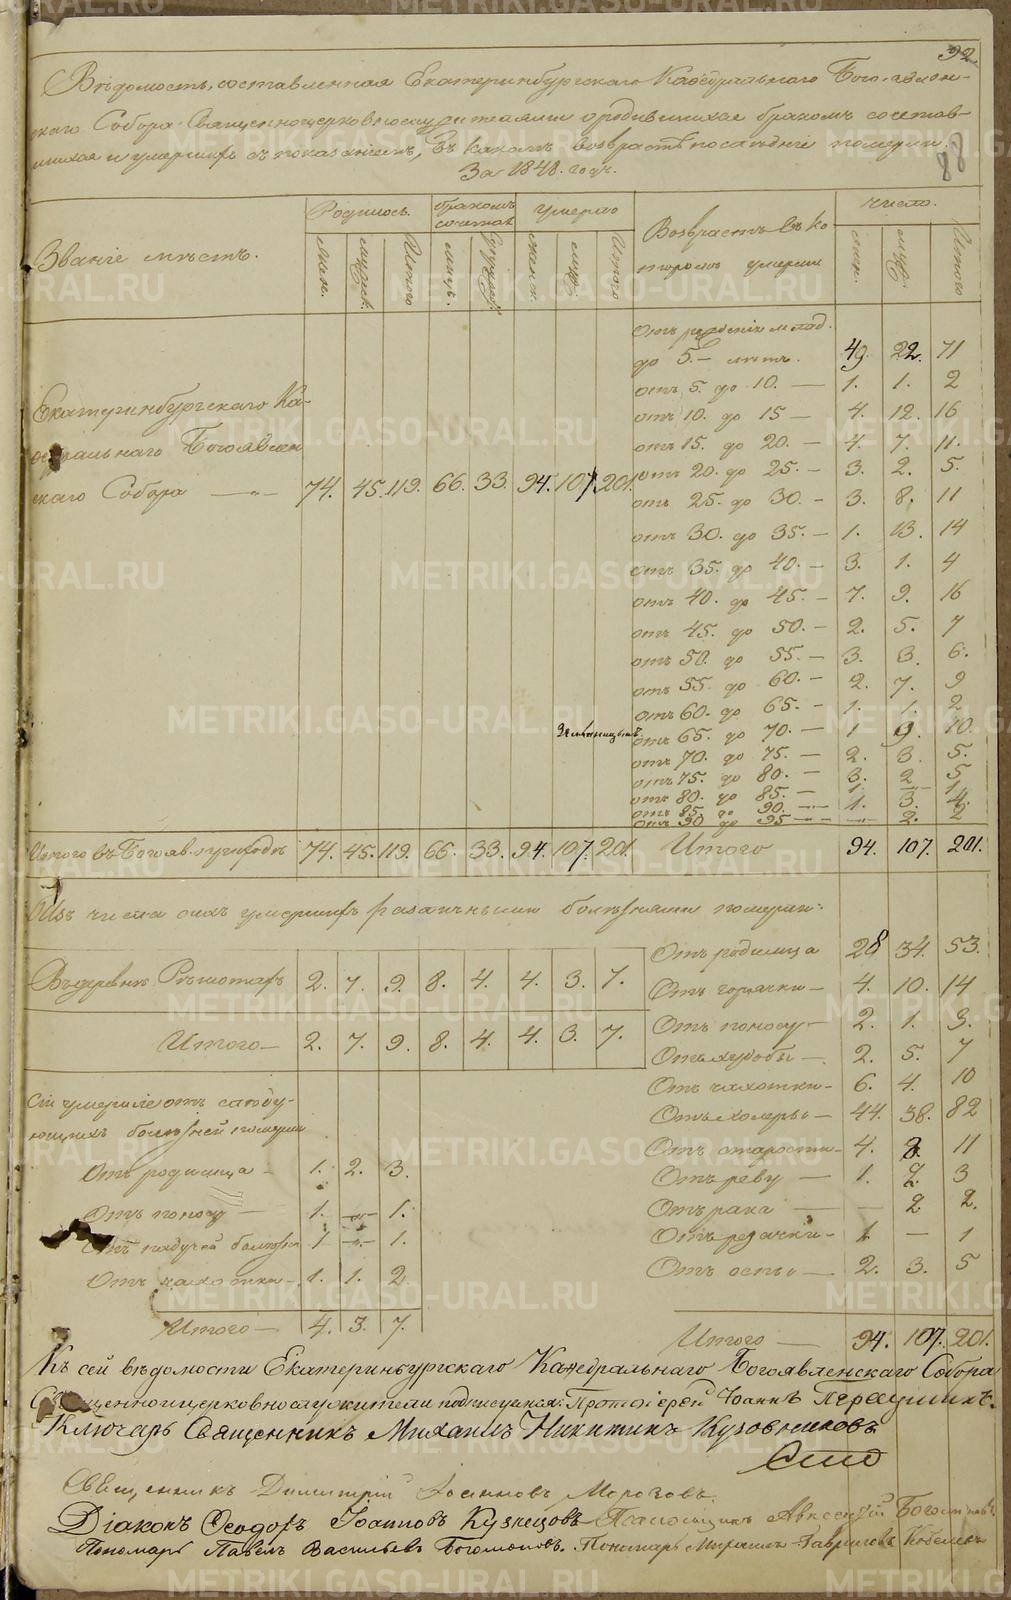 92
Ведомость, составленная Екатеринбургскаго Кафедральнаго Богоявлен-
скаго Собора Священноцерковнослужителями о родившихся бракомъ сочетав-
шихся и умершихъ съ показаніемъ, въ какомъ возврастѣ последніе померли.
88
За 1848. годъ.
Званіе мѣстъ.
Родилось.
бракомъ сочетал
умерло
Возврастъ въ ко
торомъ умерли
число.
Итого
Итого
Итого
Отъ рожденія млад.
до 5.– лѣтъ. 49. 22. 71
отъ 5. до 10. — 1. 1. 2
отъ 10. до 15 — 4. 12. 16
отъ 15. до 20. – 4. 7. 11.
отъ 20. до 25. – 3. 2. 5.
отъ 25. до 30. – 3. 8. 11
отъ 30. до 35. – 1. 13. 14
отъ 35. до 40. – 3. 1. 4
отъ 40. до 45. – 7. 9. 16
отъ 45. до 50. – 2. 5. 7
отъ 50. до 55. – 3. 3. 6.
отъ 55. до 60. – 2. 7. 9
отъ 60. до 65. – 1. 1. 2.
отъ 65. до 70. – 1 9. 10.
отъ 70. до 75. – 2. 3. 5.
отъ 75. до 80. – 3. 2 5
отъ 80. до 85. – 1. — 1
отъ 85. до 90. — 1. 3. 4.
отъ 90 до 95 — — 2. 2
Екатеринбургскаго Ка-
федральнаго Богоявлен
скаго Собора — 74. 45. 119. 66. 33. 94. 107. 201.
Итого въ Богояв. приходѣ 74. 45. 119. 66. 33. 94. 107. 201. Итого 94. 107. 201.
Изъ числа сихъ умершихъ различными болѣзнями померли:
Въ деревнѣ Рѣшотахъ 2. 7. 9. 8. 4. 4. 3. 7.
Итого — 2. 7. 9. 8. 4. 4. 3. 7.
Сіи умершіе отъ слѣду-
ющихъ болѣзней померли
Отъ родимца – 1. 2. 3.
Отъ поносу — 1. — 1.
Отъ падучей болѣзни 1 — 1.
Отъ чахотки – 1. 1. 2
Итого — 4. 3. 7.
Отъ родимца 28 34. 53.
Отъ горячки – 4. 10. 14
Отъ поносу – 2. 1. 3.
Отъ худобы – 2. 5. 7
Отъ чахотки – 6. 4. 10
Отъ холеры – 44. 38. 82
Отъ старости – 4. 11
Отъ реву — 1. 2. 3
Отъ рака — — 2 2.
Отъ резачки – 1 — 1
Отъ оспы — 2. 3. 5
Итого — 94. 107. 201.
Къ сей вѣдомости Екатеринбургскаго Кафедральнаго Богоявленскаго Собора
Священноцерковнослужители подписуемся: Протоіерей Іоаннъ
Ключарь Священникъ Михаилъ Никитинъ Кузовниковъ
Священникъ Димитрій Іоанновъ Морозовъ.
Діаконъ Ѳеодоръ Іоанновъ Кузнецовъ
Пономарь Павелъ Васильевъ Богомоловъ. Пономарь Гавриловъ
METRIKI.GASO-URAL.RU